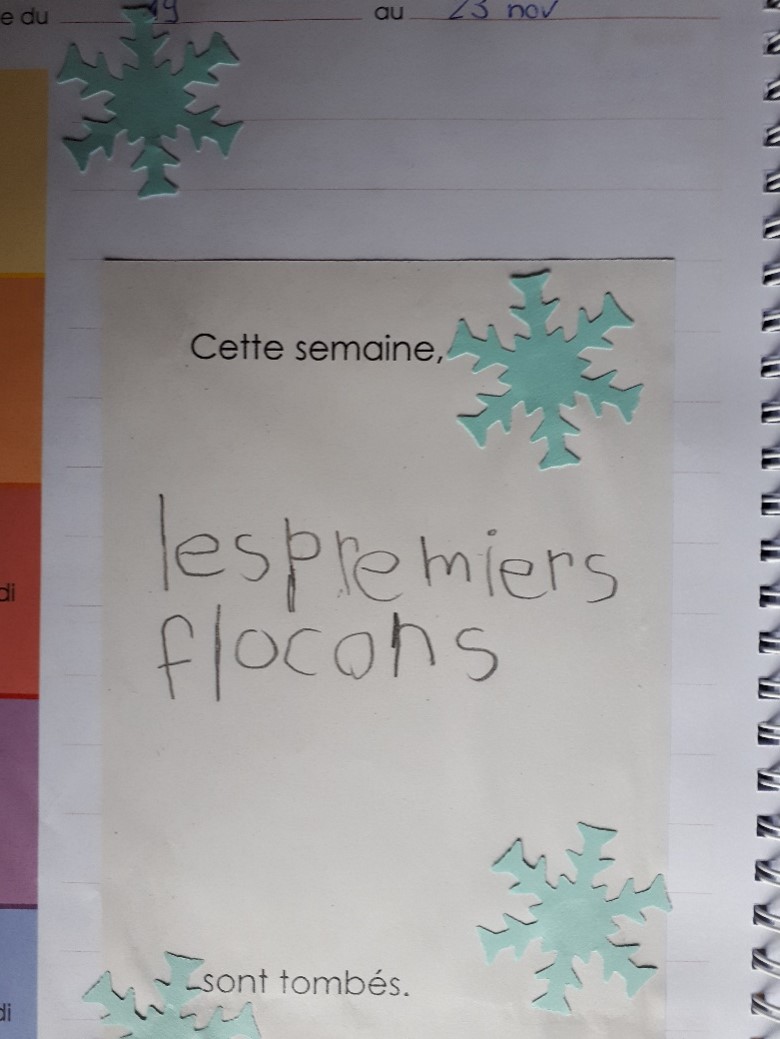 e du 19 au 23 nov
Cette semaine,
les premiers
flocons
di
sont tombés.
di